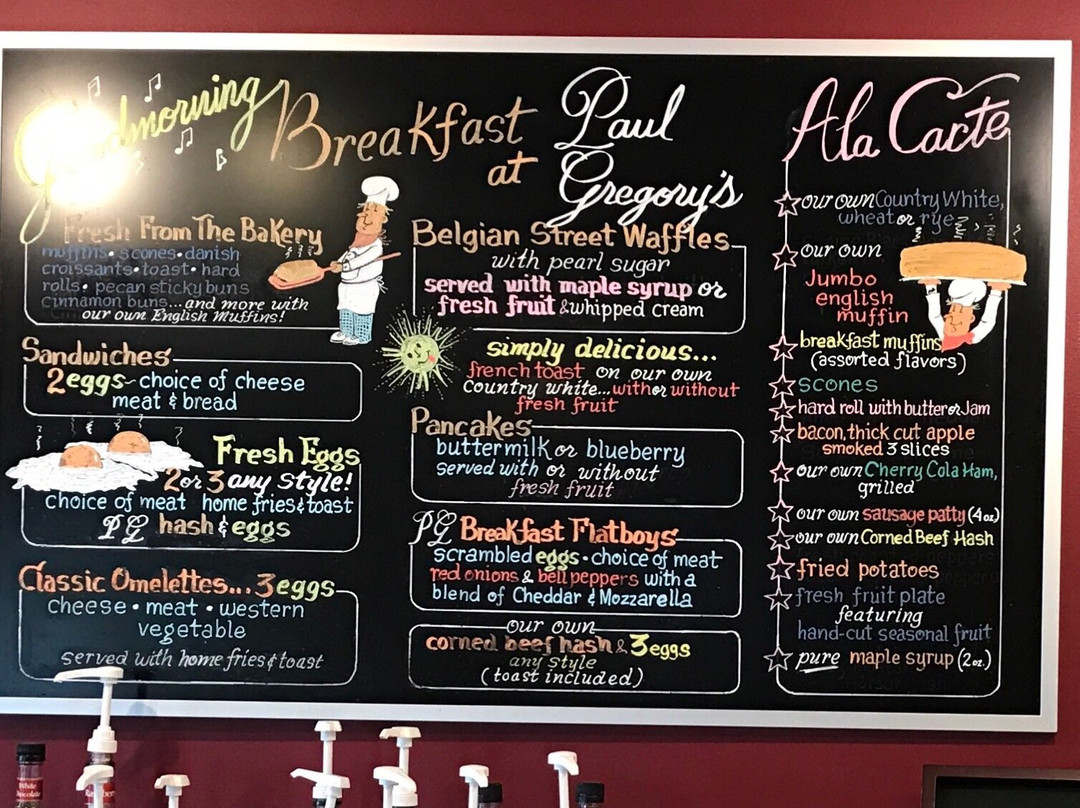 Goodmorning
Breakfast
at
Paul
Gregory's
Fresh From The Bakery
muffins • scones • danish
croissants • toast • hard
rolls • pecan sticky buns
cinnamon buns... and more with
our own English Muffins!
Sandwiches
2 eggs ~ choice of cheese
meat & bread
Fresh Eggs
2 or 3 any Style!
choice of meat home fries & toast
PG hash & eggs
Classic Omelettes... 3 eggs
cheese • meat • western
vegetable
served with home fries & toast
Belgian Street Waffles
with pearl sugar
served with maple syrup or
fresh fruit & whipped cream
simply delicious...
french toast on our own
Country white... with or without
fresh fruit
Pancakes
buttermilk or blueberry
served with or without
fresh fruit
PG Breakfast Flatboys
scrambled eggs • choice of meat
red onions & bell peppers with a
blend of Cheddar & Mozzarella
our own
corned beef hash & 3 eggs
any style
(toast included)
Ala Carte
our own Country White,
wheat or rye
our own
Jumbo
english
muffin
breakfast muffins
(assorted flavors)
scones
hard roll with butter or Jam
bacon, thick cut apple
smoked 3 slices
our own Cherry Cola Ham,
grilled
our own sausage patty (4 oz)
our own Corned Beef Hash
fried potatoes
fresh fruit plate
featuring
hand-cut seasonal fruit
pure maple syrup (2 oz.)
White
Chocolate